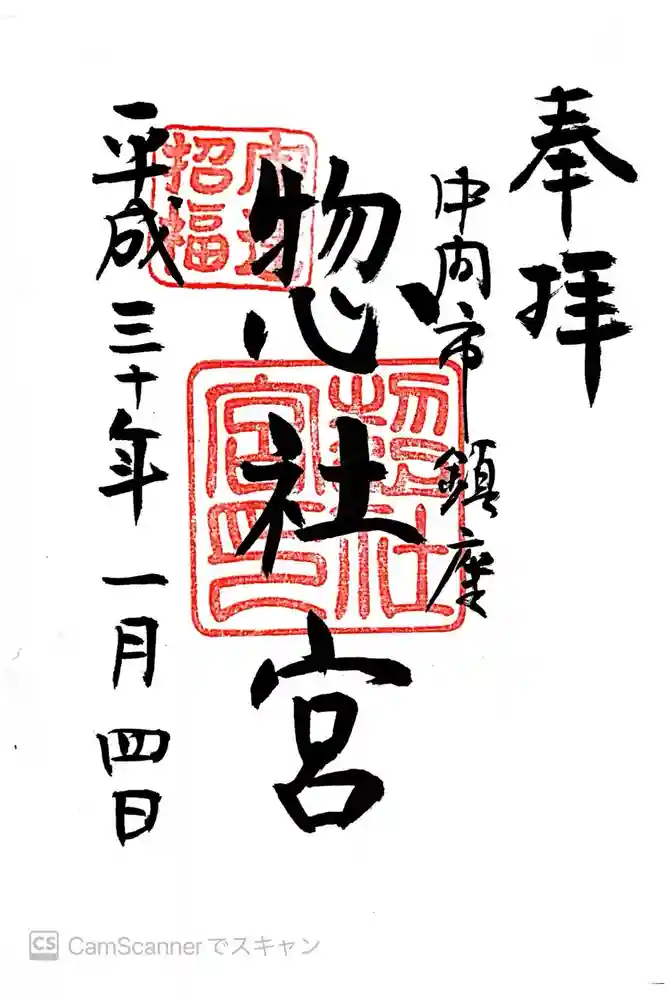 奉拝
内市鎮座
惣社宮
惣社宮印
招福
平成三十年一月四日
CS CamScannerでスキャン